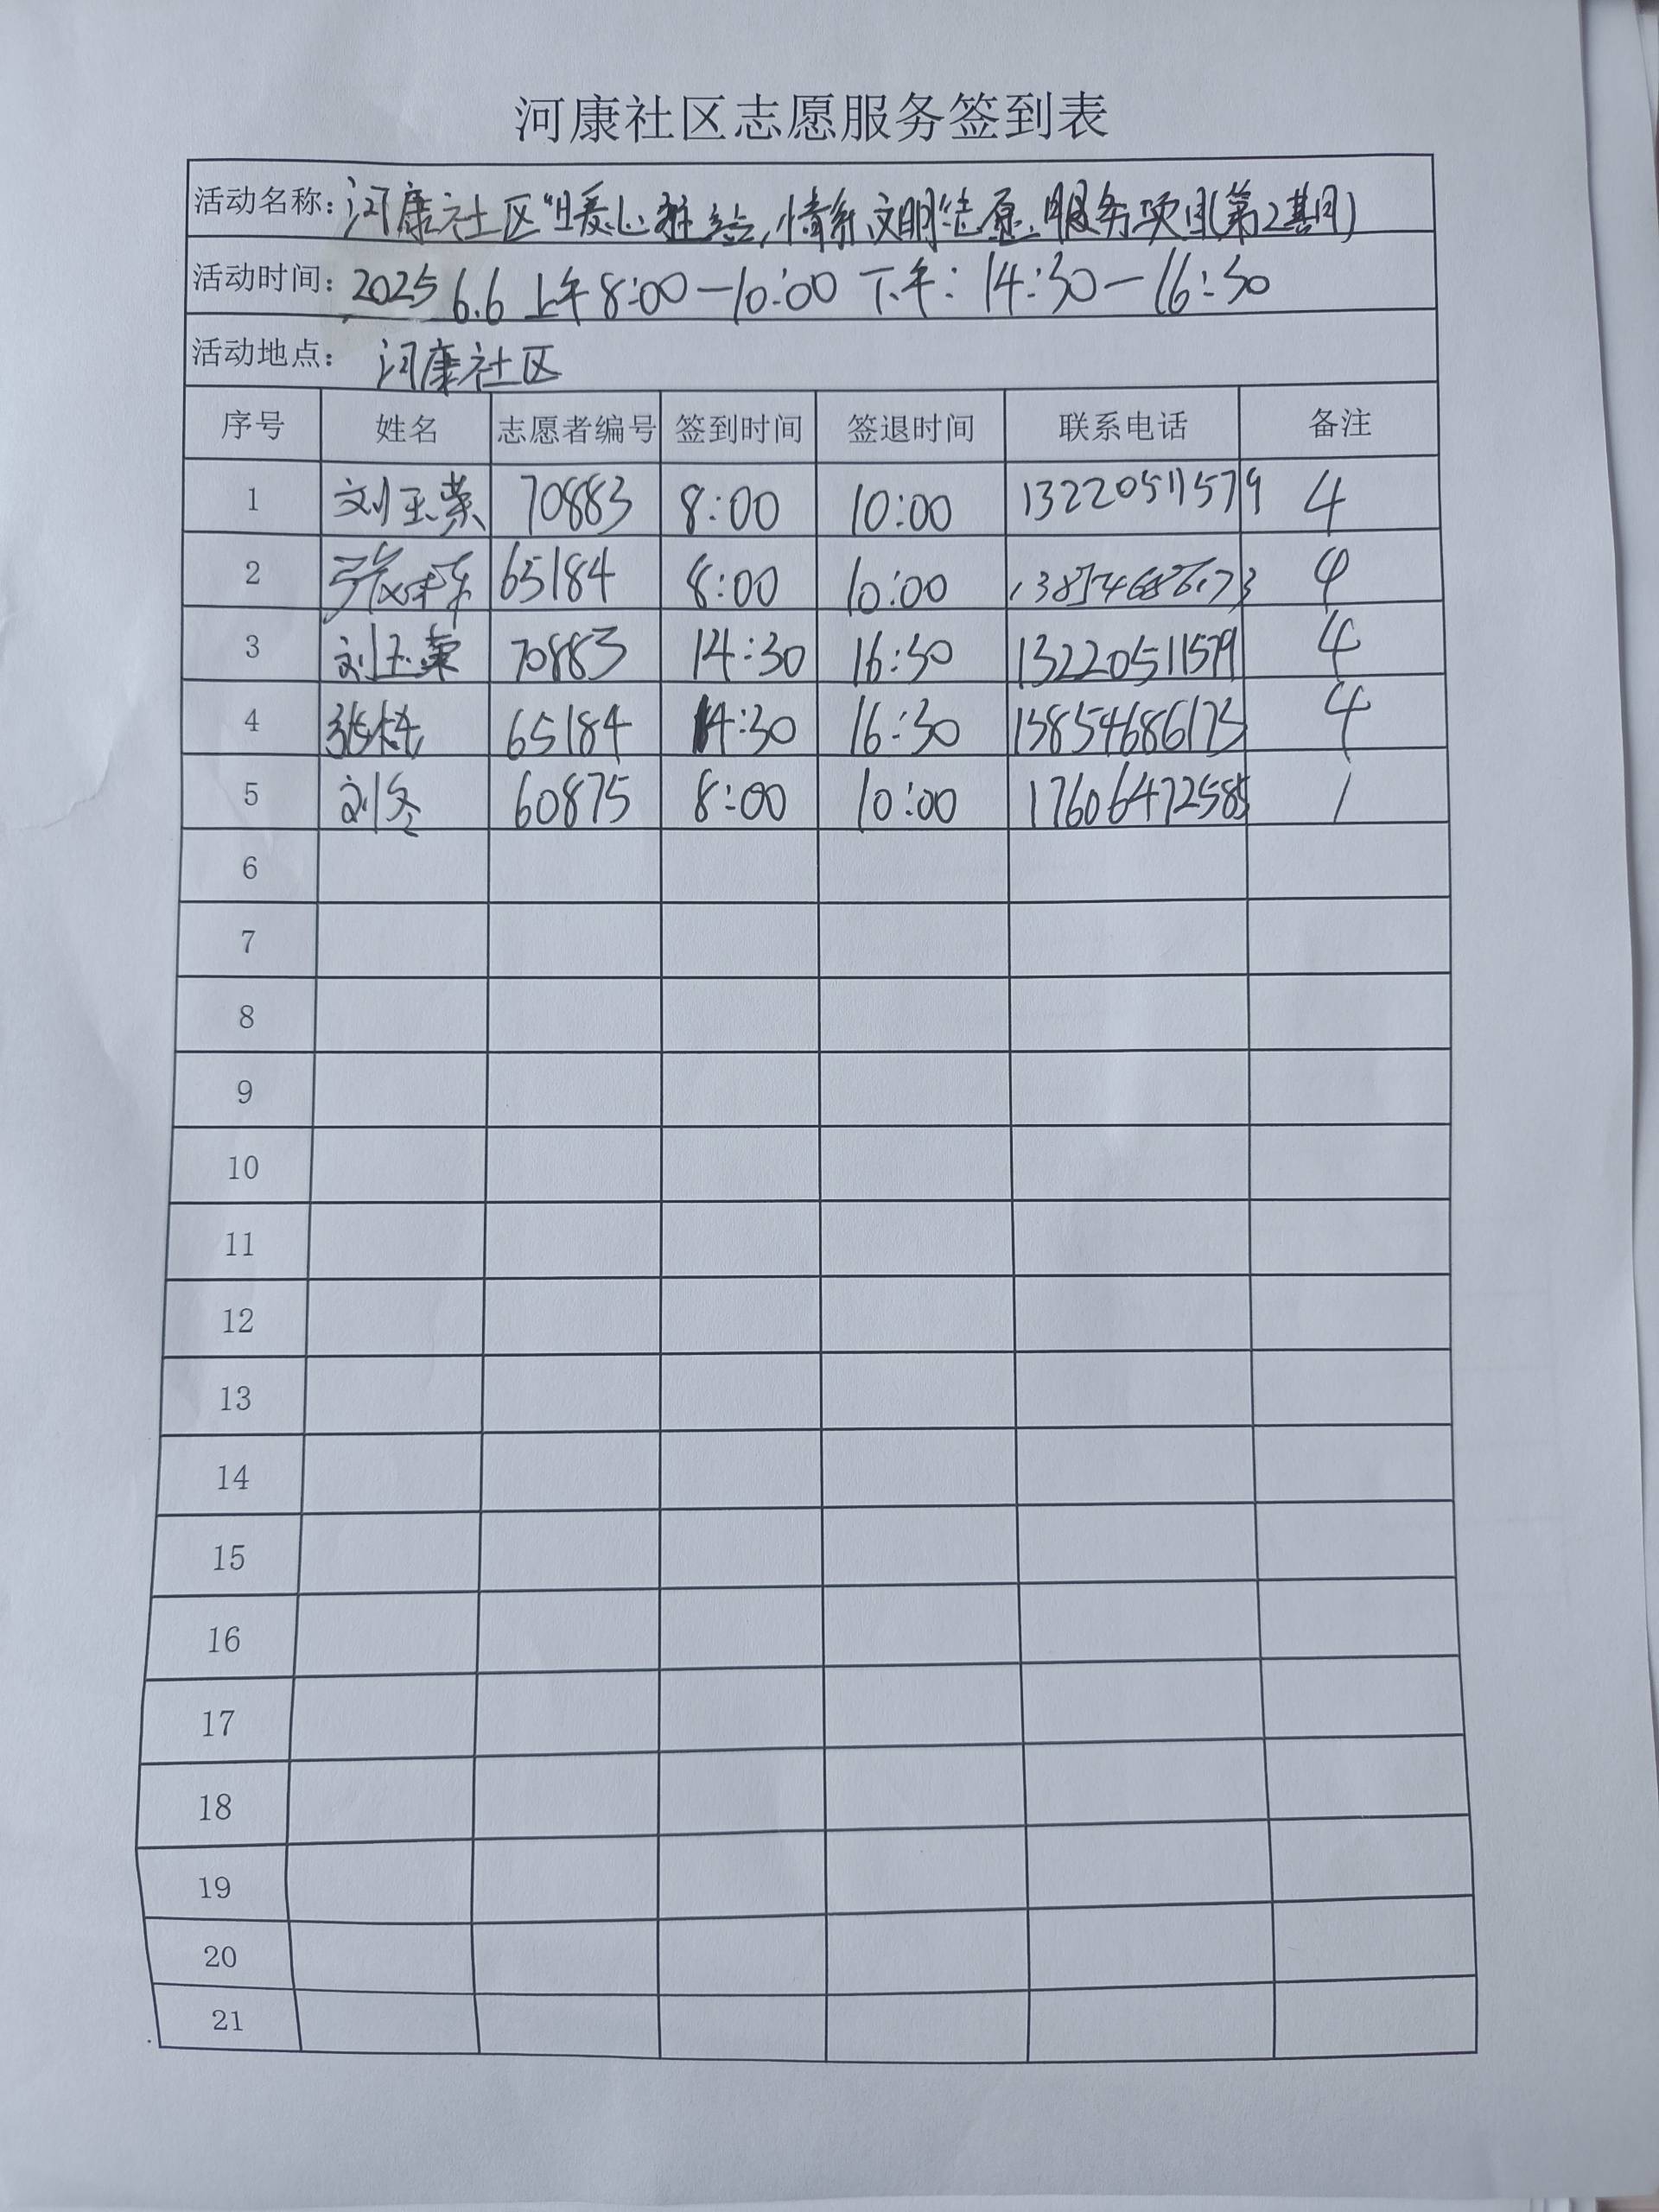 河康社区志愿服务签到表
活动名称: 河康社区"暖心驻站,情系文明"志愿服务项目(第2期)
活动时间: 2025 6.6 上午8:00—10:00 下午: 14:30—16:30
活动地点: 河康社区
序号 姓名 志愿者编号 签到时间 签退时间 联系电话 备注
1 刘玉荣 70883 8:00 10:00 13220511579 4
2 张 65184 8:00 10:00 13854686173 4
3 刘玉荣 70883 14:30 16:30 13220511579 4
4 张 65184 14:30 16:30 13854686173 4
5 刘冬 60875 8:00 10:00 17606472585 1
6
7
8
9
10
11
12
13
14
15
16
17
18
19
20
21